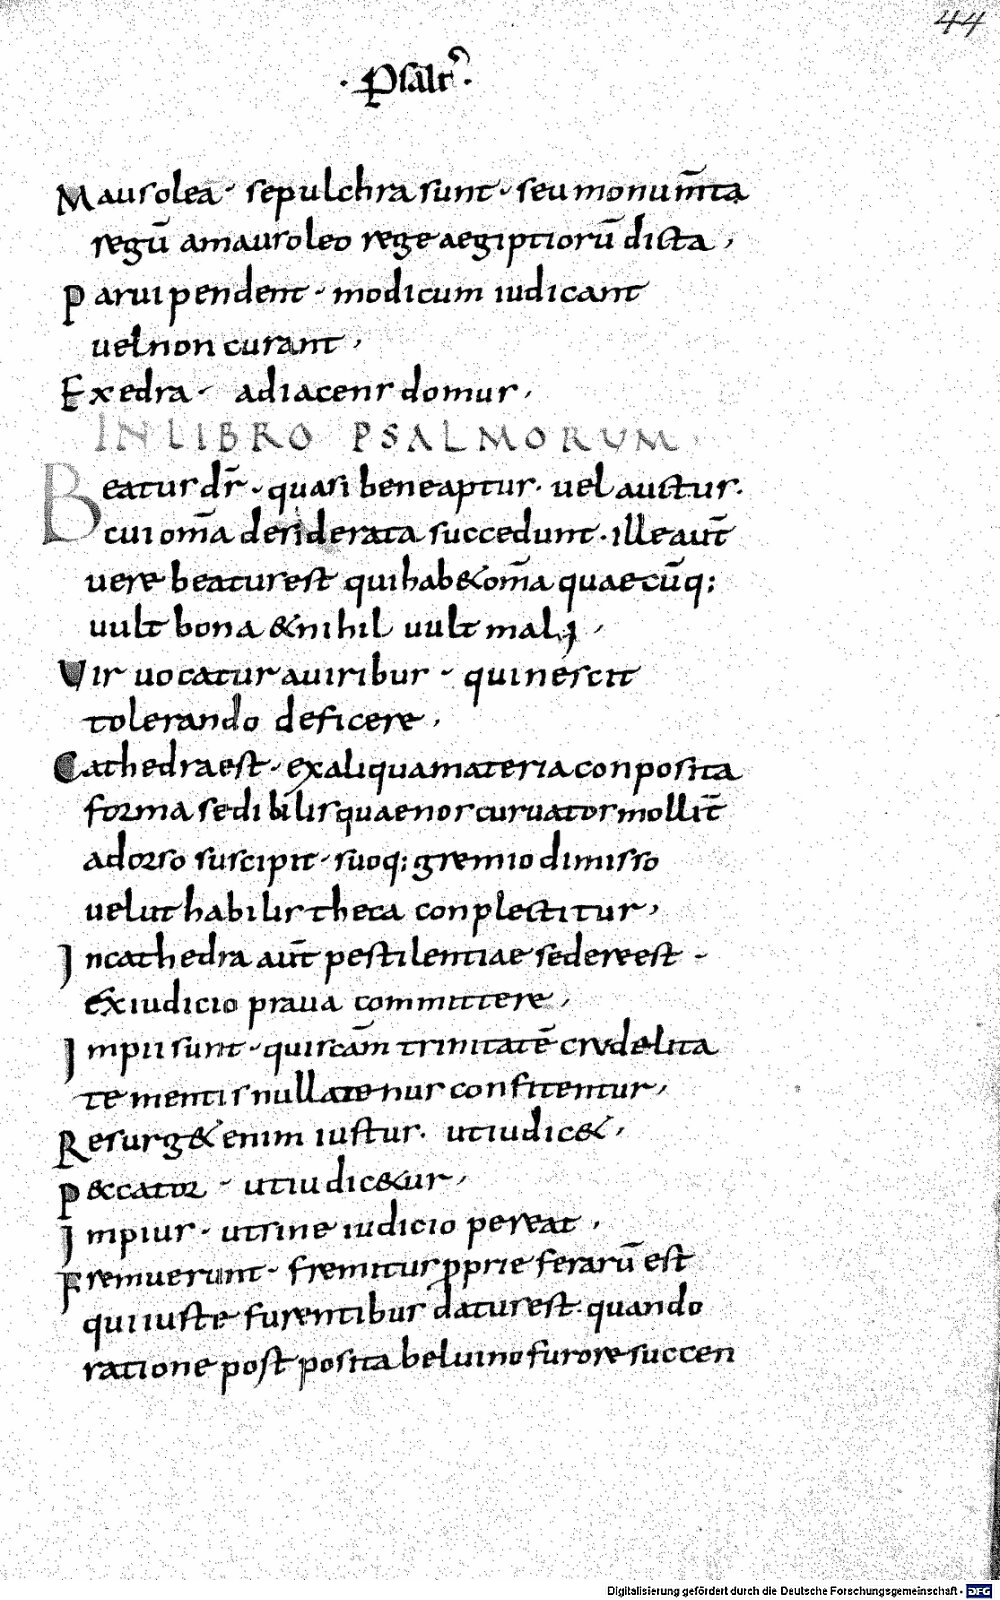 44
· Psałt᷒ ·
Mausolea · sepulchra sunt · seu monum̅ta
regū amausoleo rege aegiptiorū dicta,
Parui pendent · modicum iudicant
uel non curant,
Exedra · adiacens domus,
IN LIBRO PSALMORUM
Beatus dr̅ · quasi bene aptus · uel auctus ·
cui om̅a desiderata succedunt · ille aut̅
uere beatus est qui hab& om̅a quaecūq;
uult bona & nihil uult mali,
Vir uocatur auiribus · qui nescit
tolerando deficere,
Cathedra est · ex aliqua materia conposita
forma sedibilis quae nos curuatos mollit̅
adorso suscipit · suoq; gremio dimisso
uelut habilis theca conplectitur,
In cathedra aut̅ pestilentiae sedere est ·
ex iudicio praua committere,
Impii sunt · qui scām trinitatē crudelita
te mentis nullatenus confitentur,
Resurg& enim iustus · ut iudic&,
P&ccator · ut iudic&ur,
Impius · ut sine iudicio pereat,
Fremuerunt · fremitus pprie ferarū est
qui iuste furentibus datur est · quando
ratione postposita beluino furore succen
Digitalisierung gefördert durch die Deutsche Forschungsgemeinschaft - DFG